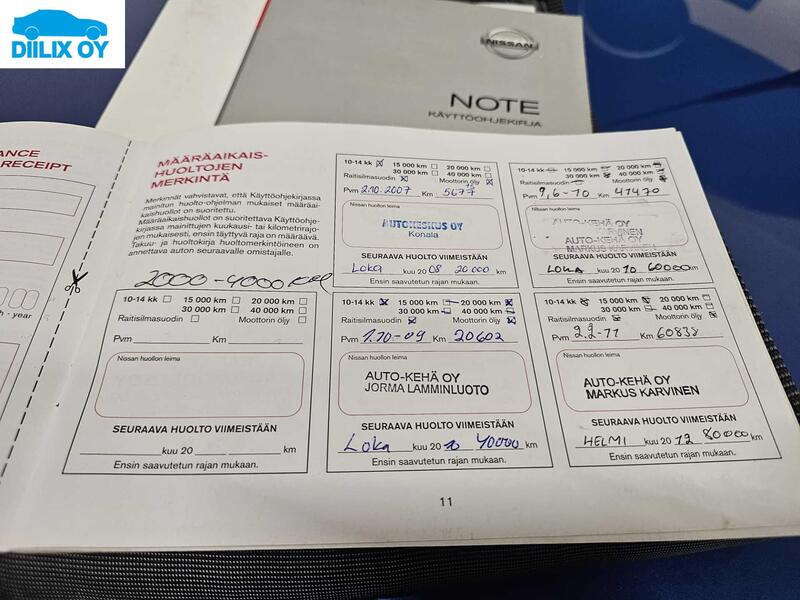 DIILIX OY
NISSAN
NOTE
KÄYTTÖOHJEKIRJA
ANCE
RECEIPT
h - year
MÄÄRÄAIKAIS-
HUOLTOJEN
MERKINTÄ
Merkinnät vahvistavat, että Käyttöohjekirjassa
mainitun huolto-ohjelman mukaiset määräai-
kaishuollot on suoritettu.
Määräaikaishuollot on suoritettava Käyttöohje-
kirjassa mainittujen kuukausi- tai kilometrirajo-
jen mukaisesti, ensin täyttyvä raja on määräävä.
Takuu- ja huoltokirja huoltomerkintöineen on
annettava auton seuraavalle omistajalle.
2000-4000 km
10-14 kk 15 000 km 20 000 km
30 000 km 40 000 km
Raitisilmasuodin Moottorin öljy
Pvm Km
Nissan huollon leima
SEURAAVA HUOLTO VIIMEISTÄÄN
kuu 20 km
Ensin saavutetun rajan mukaan.
10-14 kk 15 000 km 20 000 km
30 000 km 40 000 km
Raitisilmasuodin Moottorin öljy
Pvm 2.10.2007 Km 5677
Nissan huollon leima
AUTOKESKUS OY
Konala
SEURAAVA HUOLTO VIIMEISTÄÄN
Loka kuu 20 08 20 000 km
Ensin saavutetun rajan mukaan.
10-14 kk 15 000 km 20 000 km
30 000 km 40 000 km
Raitisilmasuodin Moottorin öljy
Pvm 1.10-09 Km 20602
Nissan huollon leima
AUTO-KEHÄ OY
JORMA LAMMINLUOTO
SEURAAVA HUOLTO VIIMEISTÄÄN
Loka kuu 20 10 40000 km
Ensin saavutetun rajan mukaan.
10-14 kk 15 000 km 20 000 km
30 000 km 40 000 km
Raitisilmasuodin Moottorin öljy
Pvm 9.6-10 Km 41470
Nissan huollon leima
AUTO-KEHÄ OY
KARVINEN
AUTO-KEHÄ OY
MARKUS KARVINEN
SEURAAVA HUOLTO VIIMEISTÄÄN
LOKA kuu 20 10 60000 km
Ensin saavutetun rajan mukaan.
10-14 kk 15 000 km 20 000 km
30 000 km 40 000 km
Raitisilmasuodin Moottorin öljy
Pvm 2.2-11 Km 60838
Nissan huollon leima
AUTO-KEHÄ OY
MARKUS KARVINEN
SEURAAVA HUOLTO VIIMEISTÄÄN
HELMI kuu 20 12 80000 km
Ensin saavutetun rajan mukaan.
11